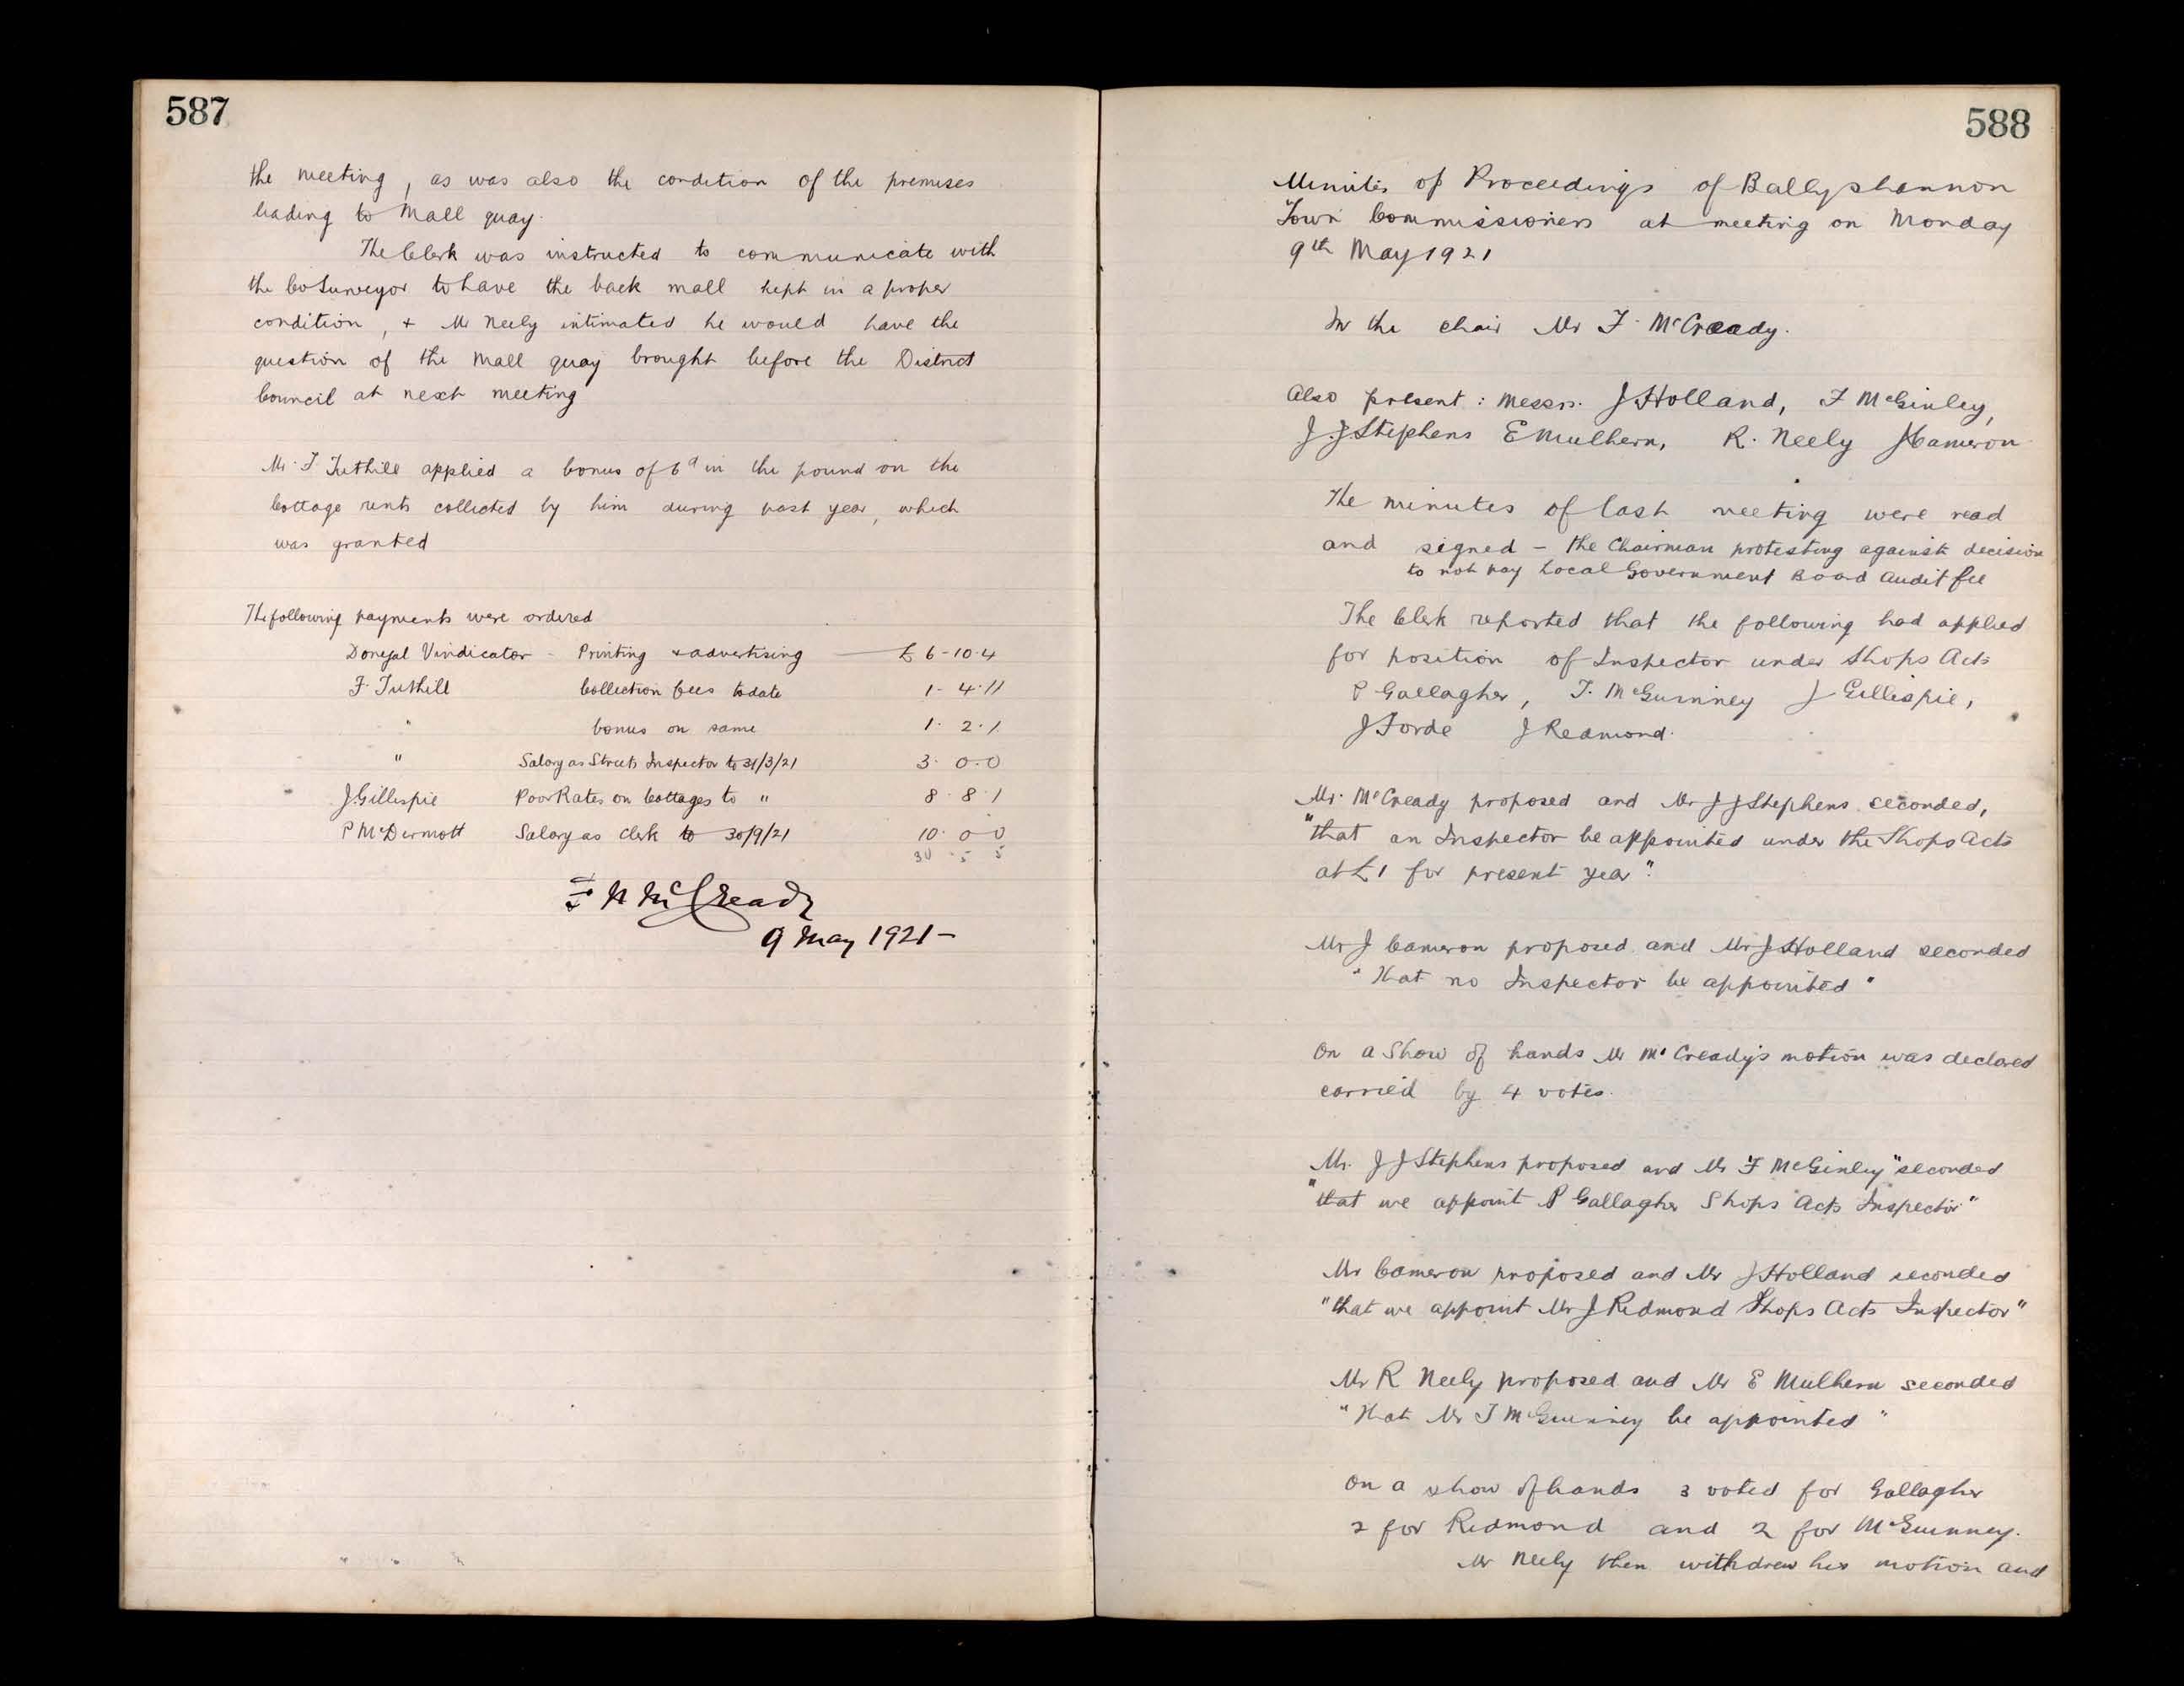 587
the meeting, as was also the condition of the premises
leading to Mall quay.
The Clerk was instructed to communicate with
the Co Surveyor to have the back mall kept in a proper
condition, + Mr Neely intimated he would have the
question of the Mall quay brought before the District
Council at next meeting
Mr. F Tuthill applied a bonus of 6d in the pound on the
Cottage rents collected by him during past year, which
was granted
The following payments were ordered
Donegal Vindicator - Printing + advertising £ 6-10-4
F. Tuthill Collection fees to date 1-4-11
" bonus on same 1-2-1
" Salary as Streets Inspector to 31/3/21 3-0-0
J. Gillespie Poor Rates on Cottages to " 8-8-1
P McDermott Salary as Clerk to 30/9/21 10-0-0
30-5-5
F N McCready
9 May 1921-
588
Minutes of Proceedings of Ballyshannon
Town Commissioners at meeting on Monday
9th May 1921
In the chair Mr F. McCready.
Also present: Messrs. J Holland, F McGinley,
J.J Stephens E Mulhern, R. Neely J Cameron
The minutes of last meeting were read
and signed - the Chairman protesting against decision
to not pay Local Government Board Audit fee
The Clerk reported that the following had applied
for position of Inspector under Shops Acts
P Gallagher, T. McGuinney J Gillispie,
J Forde J Redmond.
Mr. McCready proposed and Mr J J Stephens seconded,
"that an Inspector be appointed under the Shops Acts
at £1 for present year".
Mr J Cameron proposed and Mr J Holland seconded
"that no Inspector be appointed"
On a Show of hands Mr McCready's motion was declared
carried by 4 votes.
Mr. J J Stephens proposed and Mr F McGinley "seconded
"that we appoint P Gallagher Shops Acts Inspector"
Mr Cameron proposed and Mr J Holland seconded
"that we appoint Mr J Redmond Shops Acts Inspector"
Mr R Neely proposed and Mr E Mulhern seconded
"that Mr T McGuinney be appointed"
On a show of hands 3 voted for Gallagher
2 for Redmond and 2 for McGuinney.
Mr Neely then withdrew his motion and